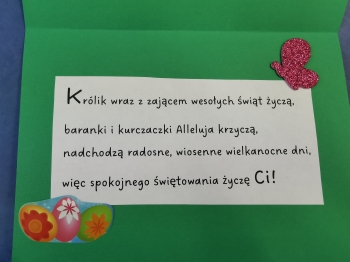 Królik wraz z zającem wesołych świąt życzą,
baranki i kurczaczki Alleluja krzyczą,
nadchodzą radosne, wiosenne wielkanocne dni,
więc spokojnego świętowania życzę Ci!